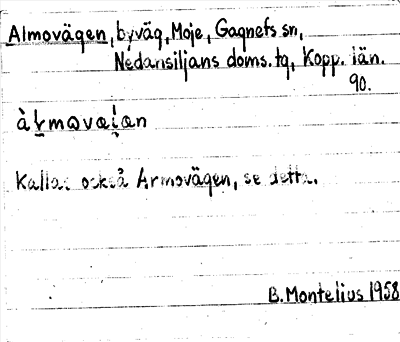 Almovägen, byväg, Moje, Gagnefs sn,
Nedansiljans doms. tg, Kopp. län.
90.
Kallas också Armovägen, se detta.
B. Montelius 1958